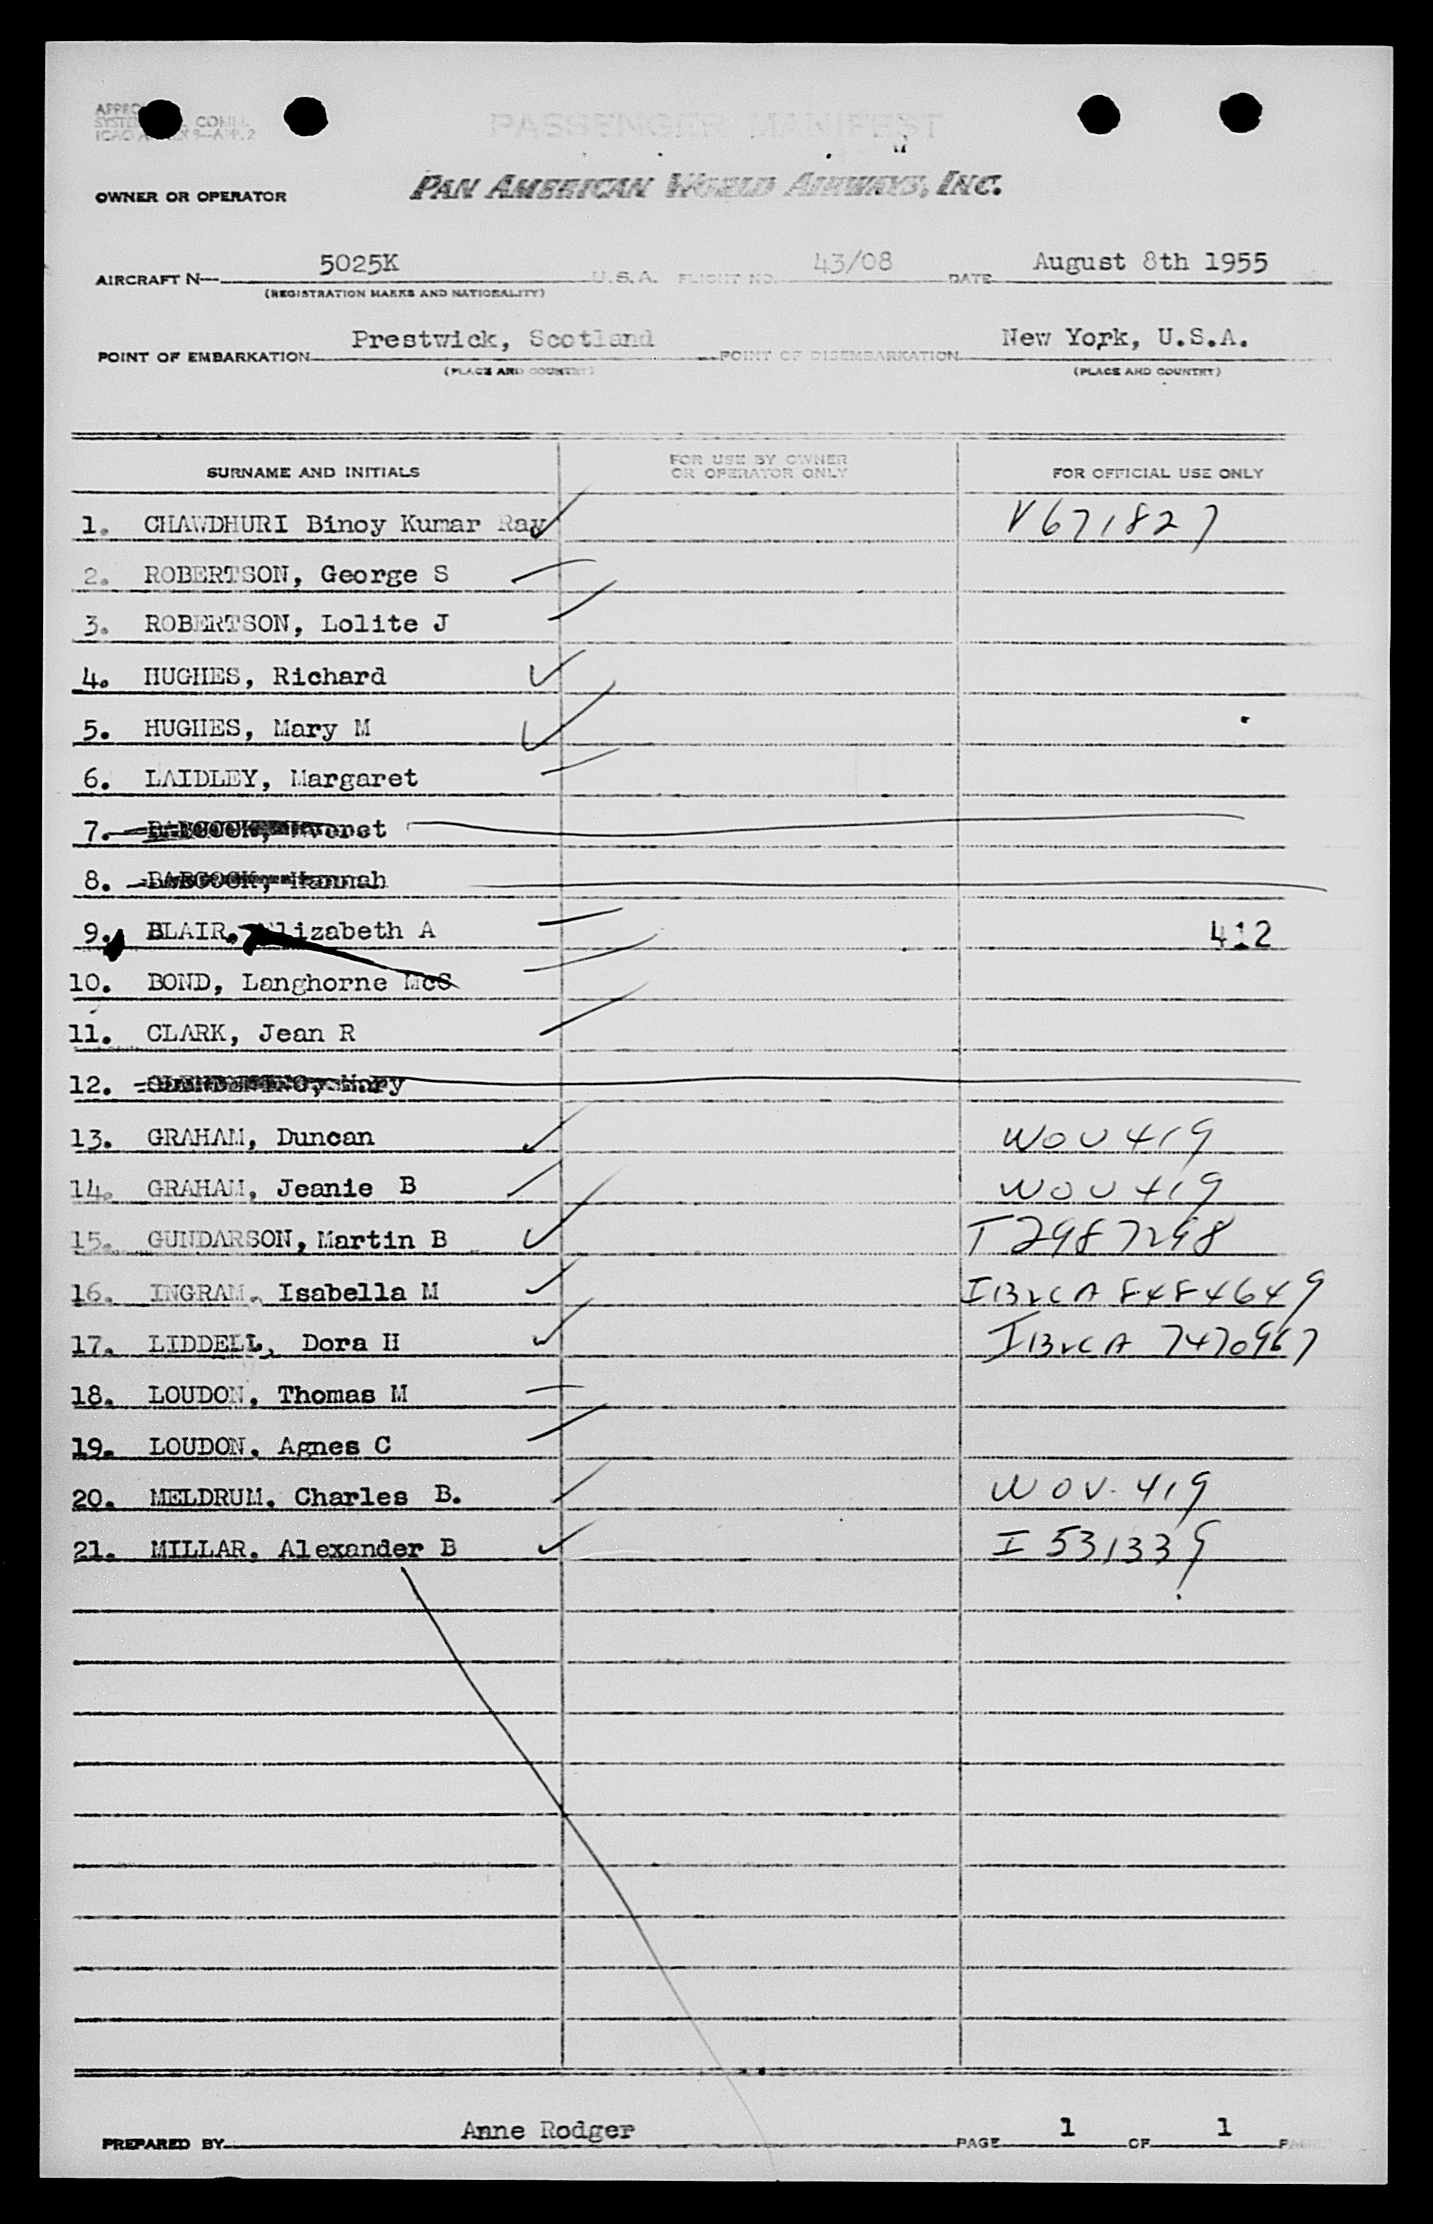 PASSENGER MANIFEST
OWNER OR OPERATOR PAN AMERICAN WORLD AIRWAYS, INC.
AIRCRAFT N— 5025K U.S.A. FLIGHT NO. 43/08 DATE August 8th 1955
(REGISTRATION MARKS AND NATIONALITY)
POINT OF EMBARKATION Prestwick, Scotland POINT OF DISEMBARKATION New York, U.S.A.
(PLACE AND COUNTRY) (PLACE AND COUNTRY)
SURNAME AND INITIALS FOR USE BY OWNER OR OPERATOR ONLY FOR OFFICIAL USE ONLY
1. CHAWDHURI Binoy Kumar Ray V671827
2. ROBERTSON, George S
3. ROBERTSON, Lolite J
4. HUGHES, Richard
5. HUGHES, Mary M
6. LAIDLEY, Margaret
7. BABCOCK,
8. BABCOCK, Hannah
9. BLAIR, Elizabeth A 412
10. BOND, Langhorne McS
11. CLARK, Jean R
12. Mary
13. GRAHAM, Duncan WOU 419
14. GRAHAM, Jeanie B WOU 419
15. GUNDARSON, Martin B T2987298
16. INGRAM, Isabella M 8484649
17. LIDDELL, Dora H 7470967
18. LOUDON, Thomas M
19. LOUDON, Agnes C
20. MELDRUM, Charles B. WOV. 419
21. MILLAR, Alexander B I 531339
PREPARED BY Anne Rodger PAGE 1 OF 1